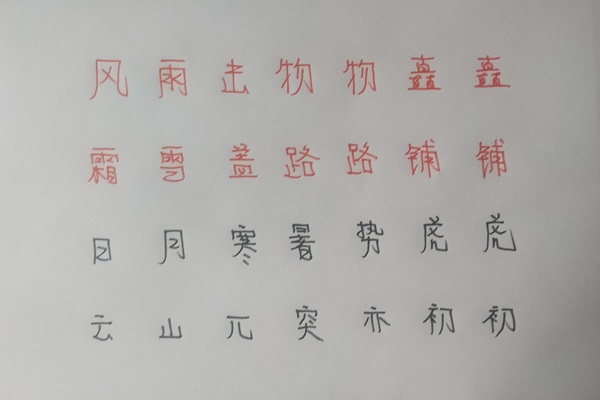 风雨出物物矗矗
霜雪盖路路铺铺
日月寒暑势虎虎
云山兀突亦初初